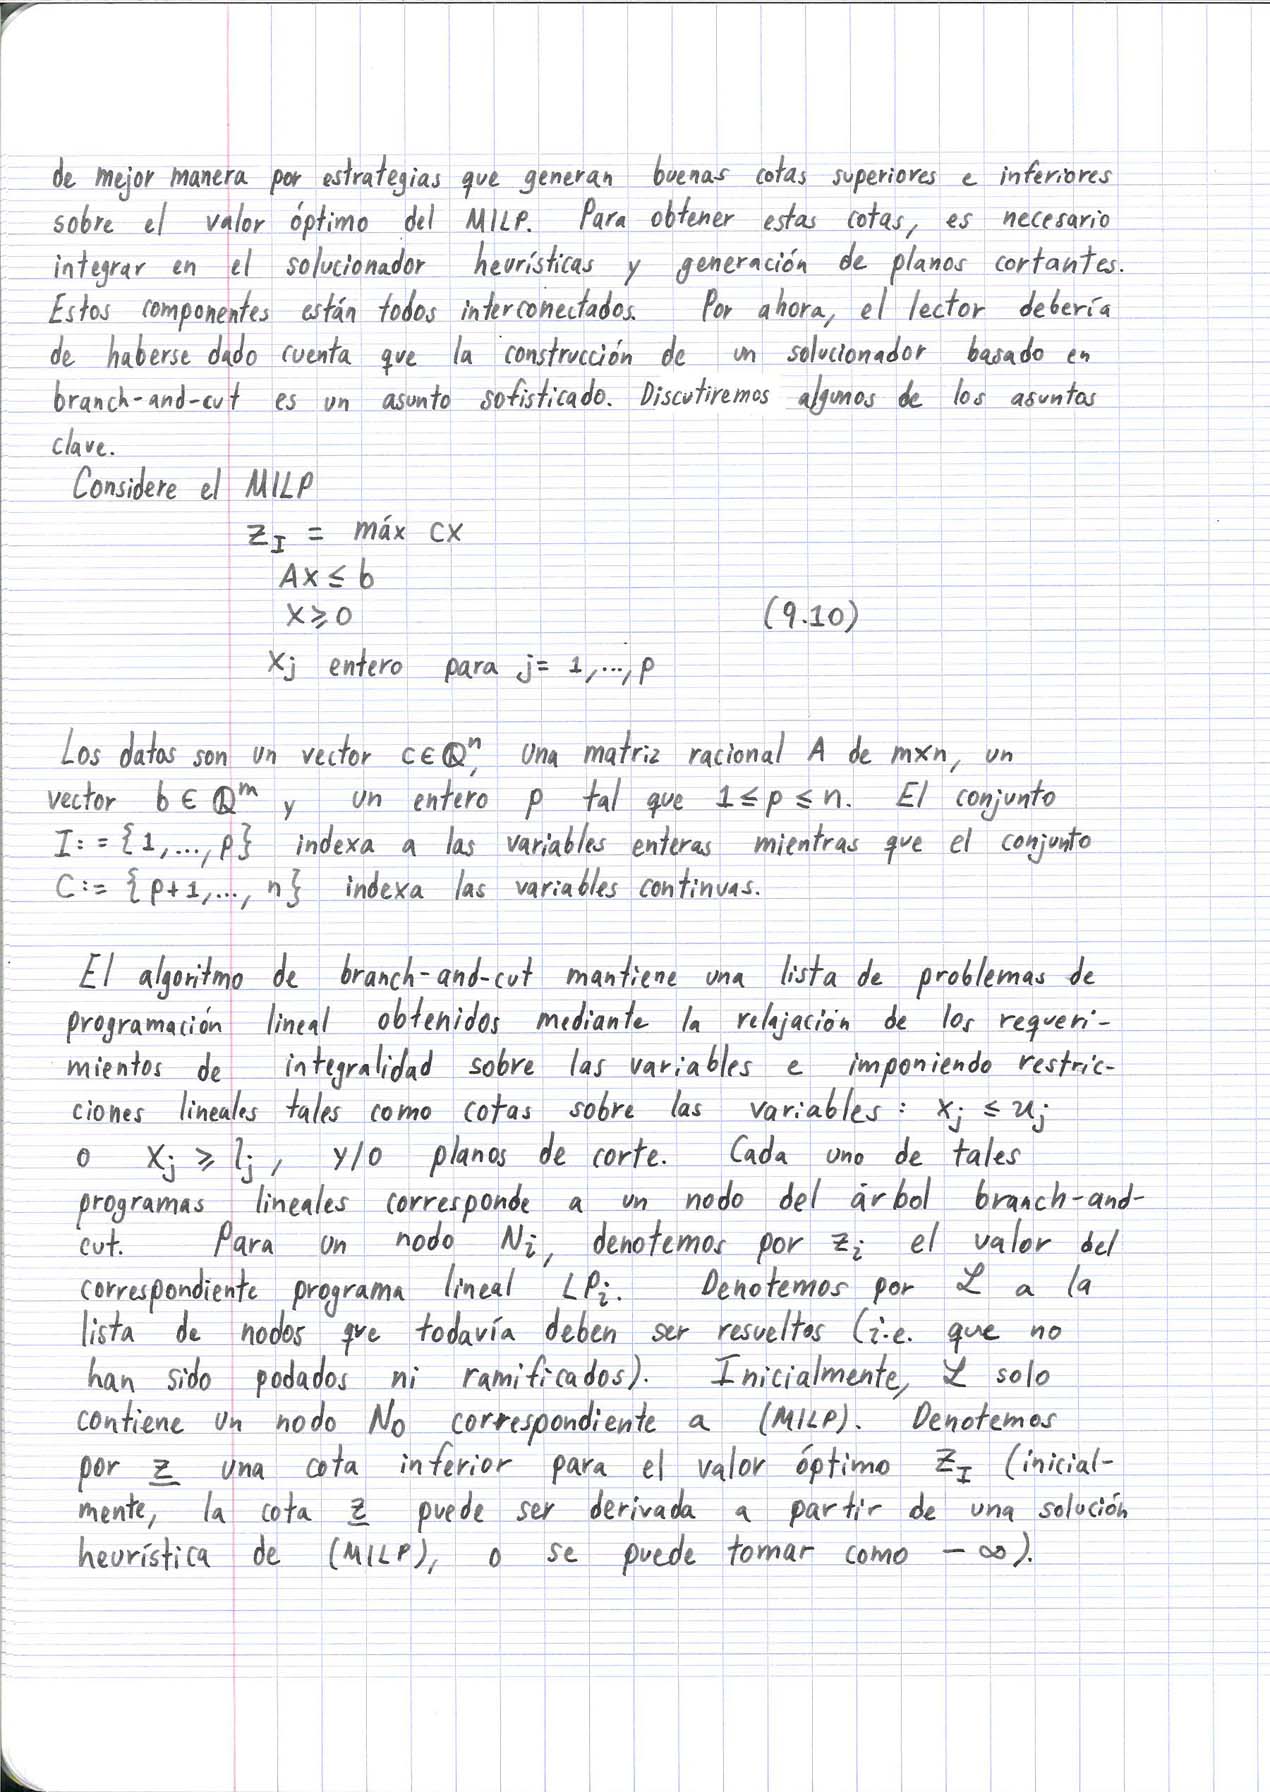 de mejor manera por estrategias que generan buenas cotas superiores e inferiores
sobre el valor óptimo del MILP. Para obtener estas cotas, es necesario
integrar en el solucionador heurísticas y generación de planos cortantes.
Estos componentes están todos interconectados. Por ahora, el lector debería
de haberse dado cuenta que la construcción de un solucionador basado en
branch-and-cut es un asunto sofisticado. Discutiremos algunos de los asuntos
clave.
Considere el MILP
z_I = máx cx
Ax ≤ b
x ⩾ 0 (9.10)
x_j entero para j = 1,...,p
Los datos son un vector c ∈ ℚⁿ, una matriz racional A de m×n, un
vector b ∈ ℚᵐ y un entero p tal que 1 ≤ p ≤ n. El conjunto
I := {1,...,p} indexa a las variables enteras mientras que el conjunto
C := {p+1,..., n} indexa las variables continuas.
El algoritmo de branch-and-cut mantiene una lista de problemas de
programación lineal obtenidos mediante la relajación de los requeri-
mientos de integralidad sobre las variables e imponiendo restric-
ciones lineales tales como cotas sobre las variables: x_j ≤ u_j
o x_j ⩾ l_j, y/o planos de corte. Cada uno de tales
programas lineales corresponde a un nodo del árbol branch-and-
cut. Para un nodo N_i, denotemos por z_i el valor del
correspondiente programa lineal LP_i. Denotemos por ℒ a la
lista de nodos que todavía deben ser resueltos (i.e. que no
han sido podados ni ramificados). Inicialmente, ℒ solo
contiene un nodo N_0 correspondiente a (MILP). Denotemos
por z̲ una cota inferior para el valor óptimo z_I (inicial-
mente, la cota z̲ puede ser derivada a partir de una solución
heurística de (MILP), o se puede tomar como -∞).